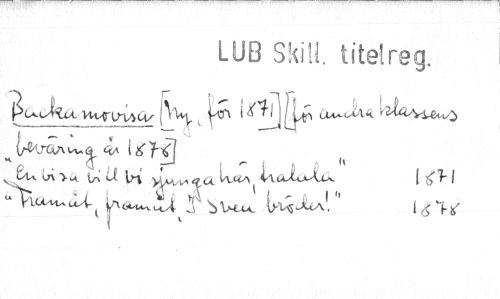 LUB Skill. titelreg.
Backamovisa [Ny, för 1871] [för andra klassens
beväring år 1878]
"En visa vill vi sjunga här, tralala" 1871
"Framåt, framåt, I Sven bröder!" 1878